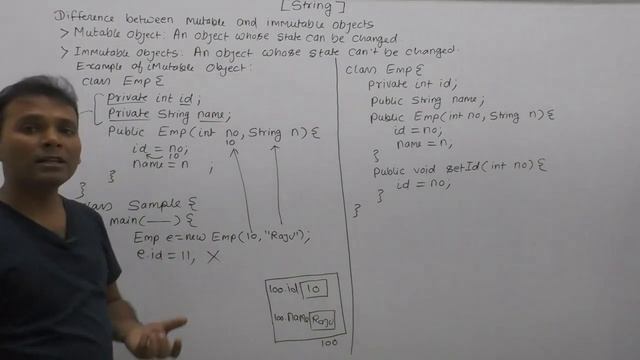 [String]
Difference between Mutable and immutable objects
> Mutable Object: An object whose state can be changed.
> Immutable Objects: An object whose state can't be changed.
Example of iMutable Object:
class Emp {
Private int id;
Private String name;
Public Emp(int no, String n){
10
id = no;
10
name = n ;
}
}
class Sample {
main(___) {
Emp e = new Emp(10, "Raju");
e.id = 11, X
100.id 10
100.name Raju
100
class Emp {
Private int id;
Public String name;
Public Emp(int no, String n){
id = no;
name = n;
}
Public void setId(int no){
id = no;
}
}